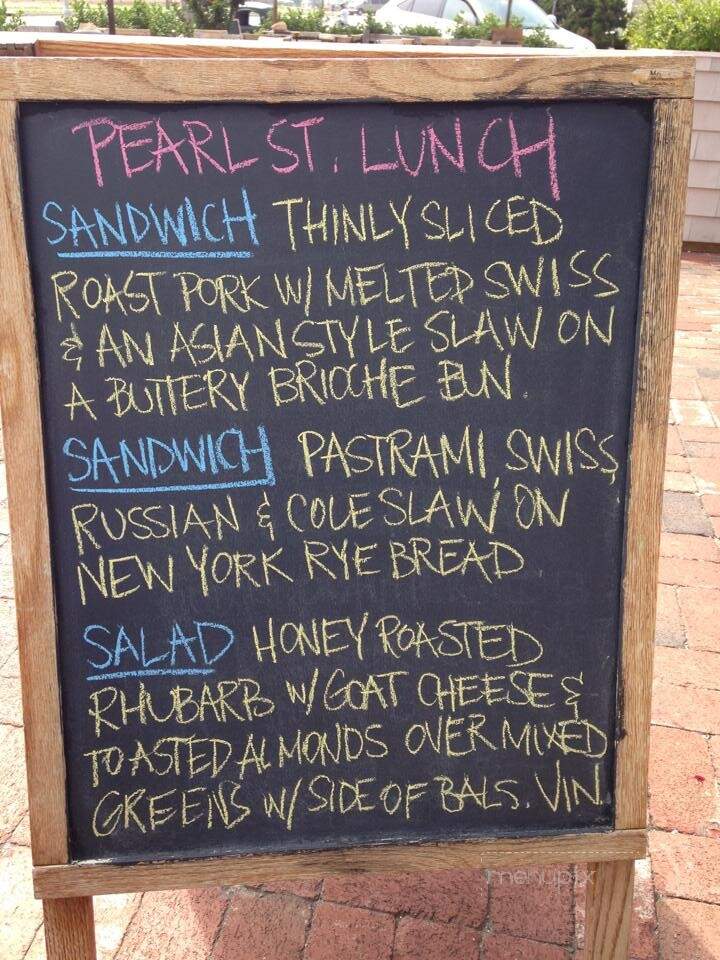 PEARL ST. LUNCH
SANDWICH THINLY SLICED
ROAST PORK W/ MELTED SWISS
& AN ASIAN STYLE SLAW ON
A BUTTERY BRIOCHE BUN.
SANDWICH PASTRAMI, SWISS,
RUSSIAN & COLE SLAW ON
NEW YORK RYE BREAD
SALAD HONEY ROASTED
RHUBARB W/ GOAT CHEESE &
TOASTED ALMONDS OVER MIXED
GREENS W/ SIDE OF BALS. VIN.
menupix